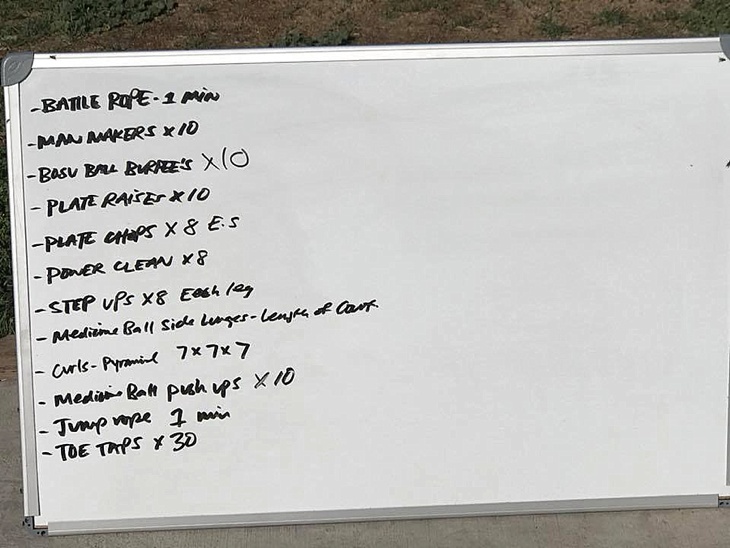 - BATTLE ROPE - 1 min
- MAN MAKERS x 10
- BOSU BALL BURPEE'S x10
- PLATE RAISES x 10
- PLATE CHOPS x 8 E.S
- POWER CLEAN x8
- STEP UPS x8 Each leg
- Medicine Ball Side Lunges - Length of Court
- Curls - Pyramid 7x7x7
- Medicine Ball push ups x 10
- Jump rope 1 min
- TOE TAPS x 30